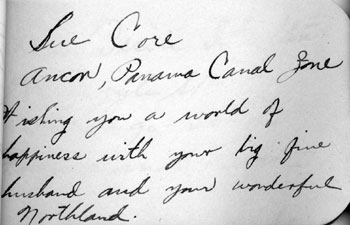 Sue Core
Ancon, Panama Canal Zone
Wishing you a world of
happiness with your big fine
husband and your wonderful
Northland.